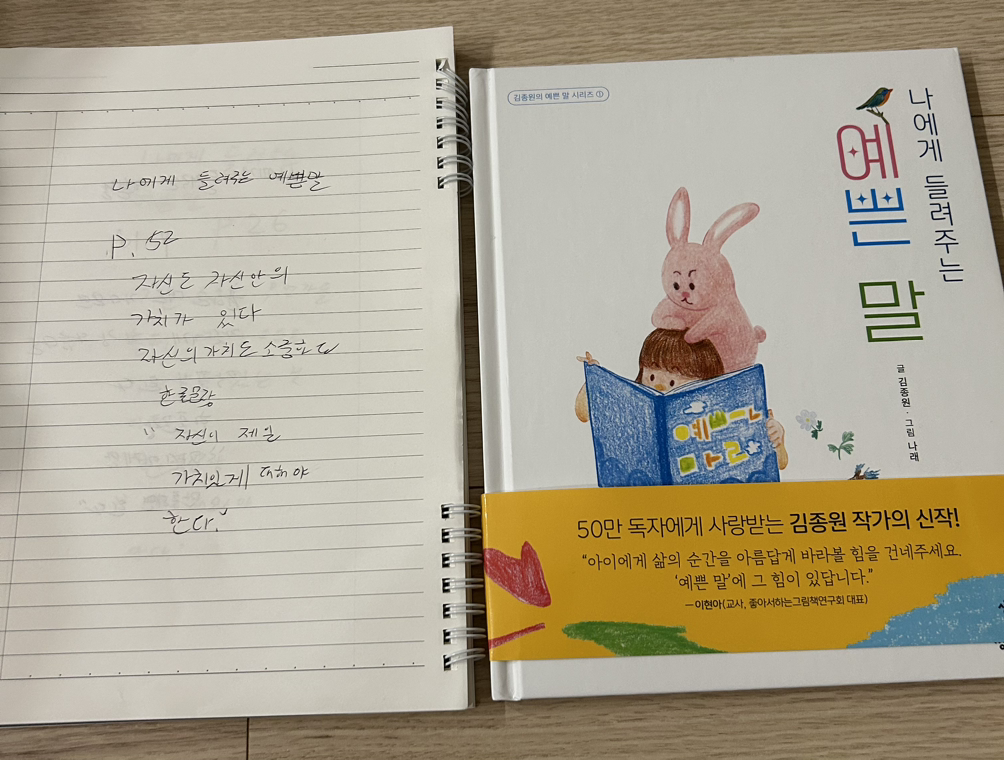 나에게 들려주는 예쁜말
P. 52
자신도 자신안의
가치가 있다
자신의 가치도 소중하다
한줄끌랑
" 자신이 제일
가치있게 대해야
한다."
김종원의 예쁜 말 시리즈 ①
나에게 들려주는
예쁜 말
글 김종원 · 그림 나래
예쁘ㅡㄴ
마ㄹ
50만 독자에게 사랑받는 김종원 작가의 신작!
“아이에게 삶의 순간을 아름답게 바라볼 힘을 건네주세요.
‘예쁜 말’에 그 힘이 있답니다.”
—이현아(교사, 좋아서하는그림책연구회 대표)